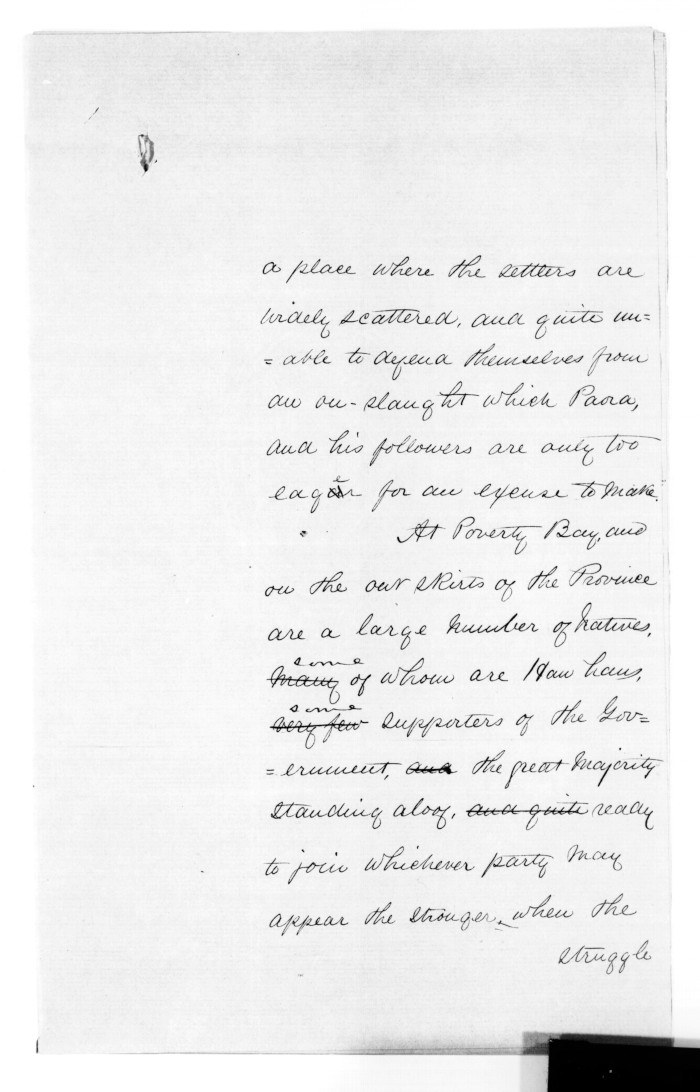 a place where the settlers are
widely scattered, and quite un=
=able to defend themselves from
an on-slaught which Paora,
and his followers are only too
eager for an excuse to make.
At Poverty Bay, and
on the out skirts of the Province
are a large number of Natives,
some
many of whom are Hau haus,
some
very few supporters of the Gov=
=ernment, and the great majority
standing aloof, and quite ready
to join whichever party may
appear the stronger, when the
struggle